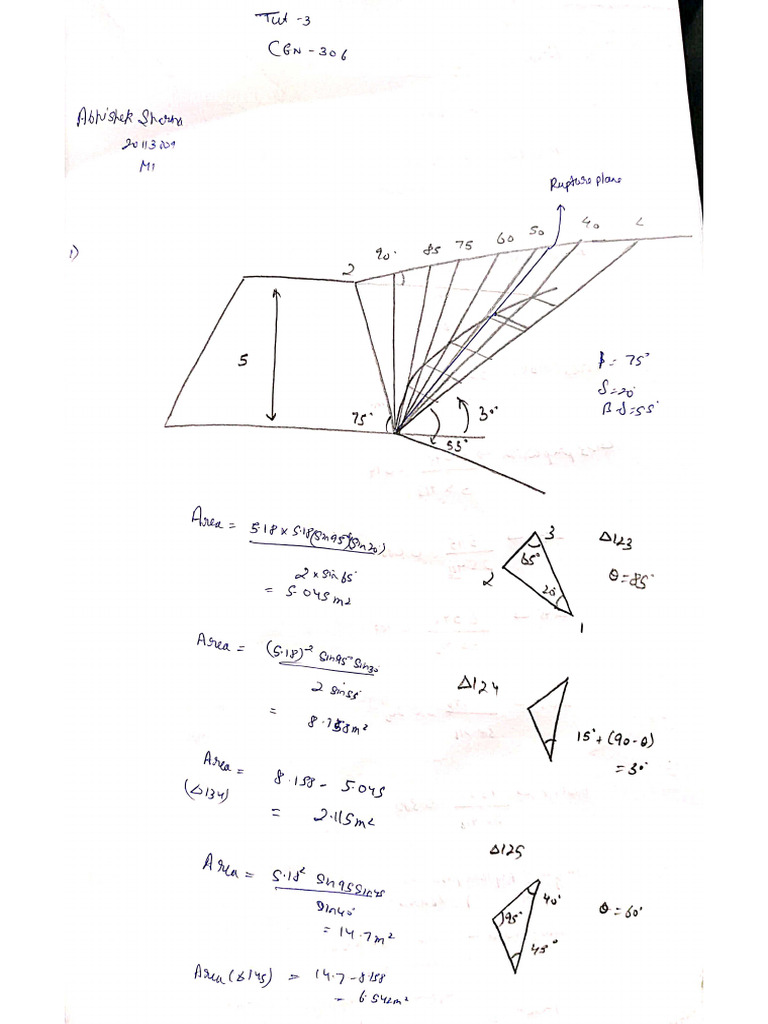 Tut -3
CGN - 306
Abhishek Sharma
M1
Rupture plane
1)
2 90° 85 75 60 50 40 L
5
75° 55° 30°
β = 75°
δ=20°
β-δ=55°
Area = 5.18 x 5.18 (sin95°)(sin20°)
2 x sin65°
= 5.045 m²
3
65°
2
20
1
Δ123
θ=85°
Area = (5.18)⁻² sin95° sin30°
2 sin55
= 8.158 m²
Δ124
15° + (90-θ)
= 30°
Area = 8.158 - 5.045
(Δ134)
= 2.115 m²
Area = 5.18² Sin95 Sin45
Sin40°
= 14.7 m²
Δ125
40°
95°
45°
θ = 60°
Area (Δ145) = 14.7 - 8.158
= 6.542 m²